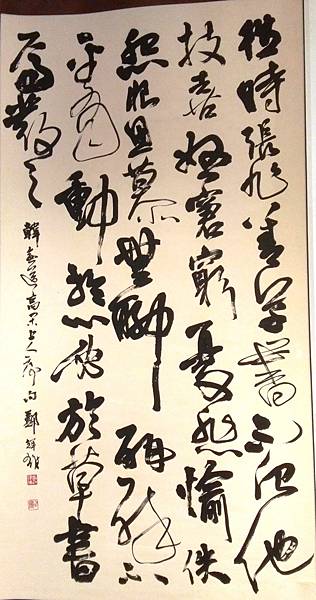 往時張旭善草書不治他
技喜怒窘窮憂悲愉佚
怨恨思慕無聊酣醉不
平有動於心必於草書
焉發之
韓愈送高閑上人序句 鄭